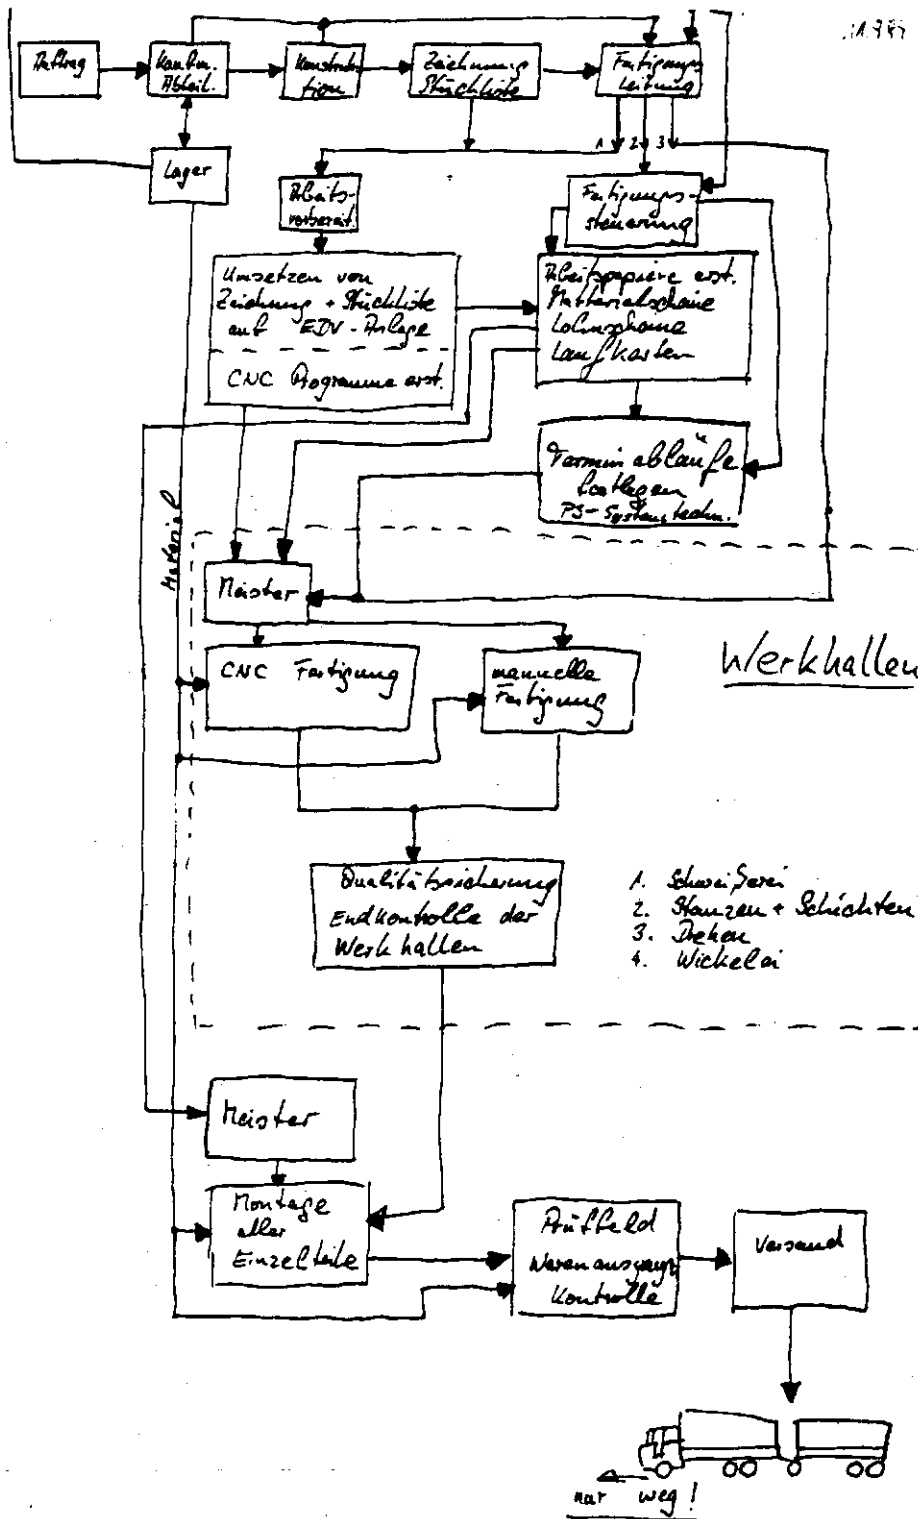 Auftrag
Kaufm.
Abteil.
Konstruk-
tion
Zeichnung
Stückliste
Fertigungs
Leitung
1 2 3
Lager
Arbeits-
vorbereit.
Fertigungs-
steuerung
Umsetzen von
Zeichnung + Stückliste
auf EDV-Anlage
CNC Programme erst.
Arbeitspapiere erst.
Materialscheine
Lohnscheine
Laufkarten
Terminabläufe
festlegen
PS-Systemtechn.
Material
Meister
Werkhallen
CNC Fertigung
manuelle
Fertigung
Qualitätssicherung
Endkontrolle der
Werkhallen
1. Schweißerei
2. Stanzen + Schichten
3. Drehen
4. Wickelei
Meister
Montage
aller
Einzelteile
Prüffeld
Warenausgangs
Kontrolle
Versand
nur weg!